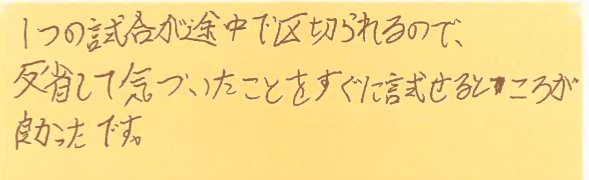 1つの試合が途中で区切られるので、
反省して気づいたことをすぐに試せるところが
良かったです。